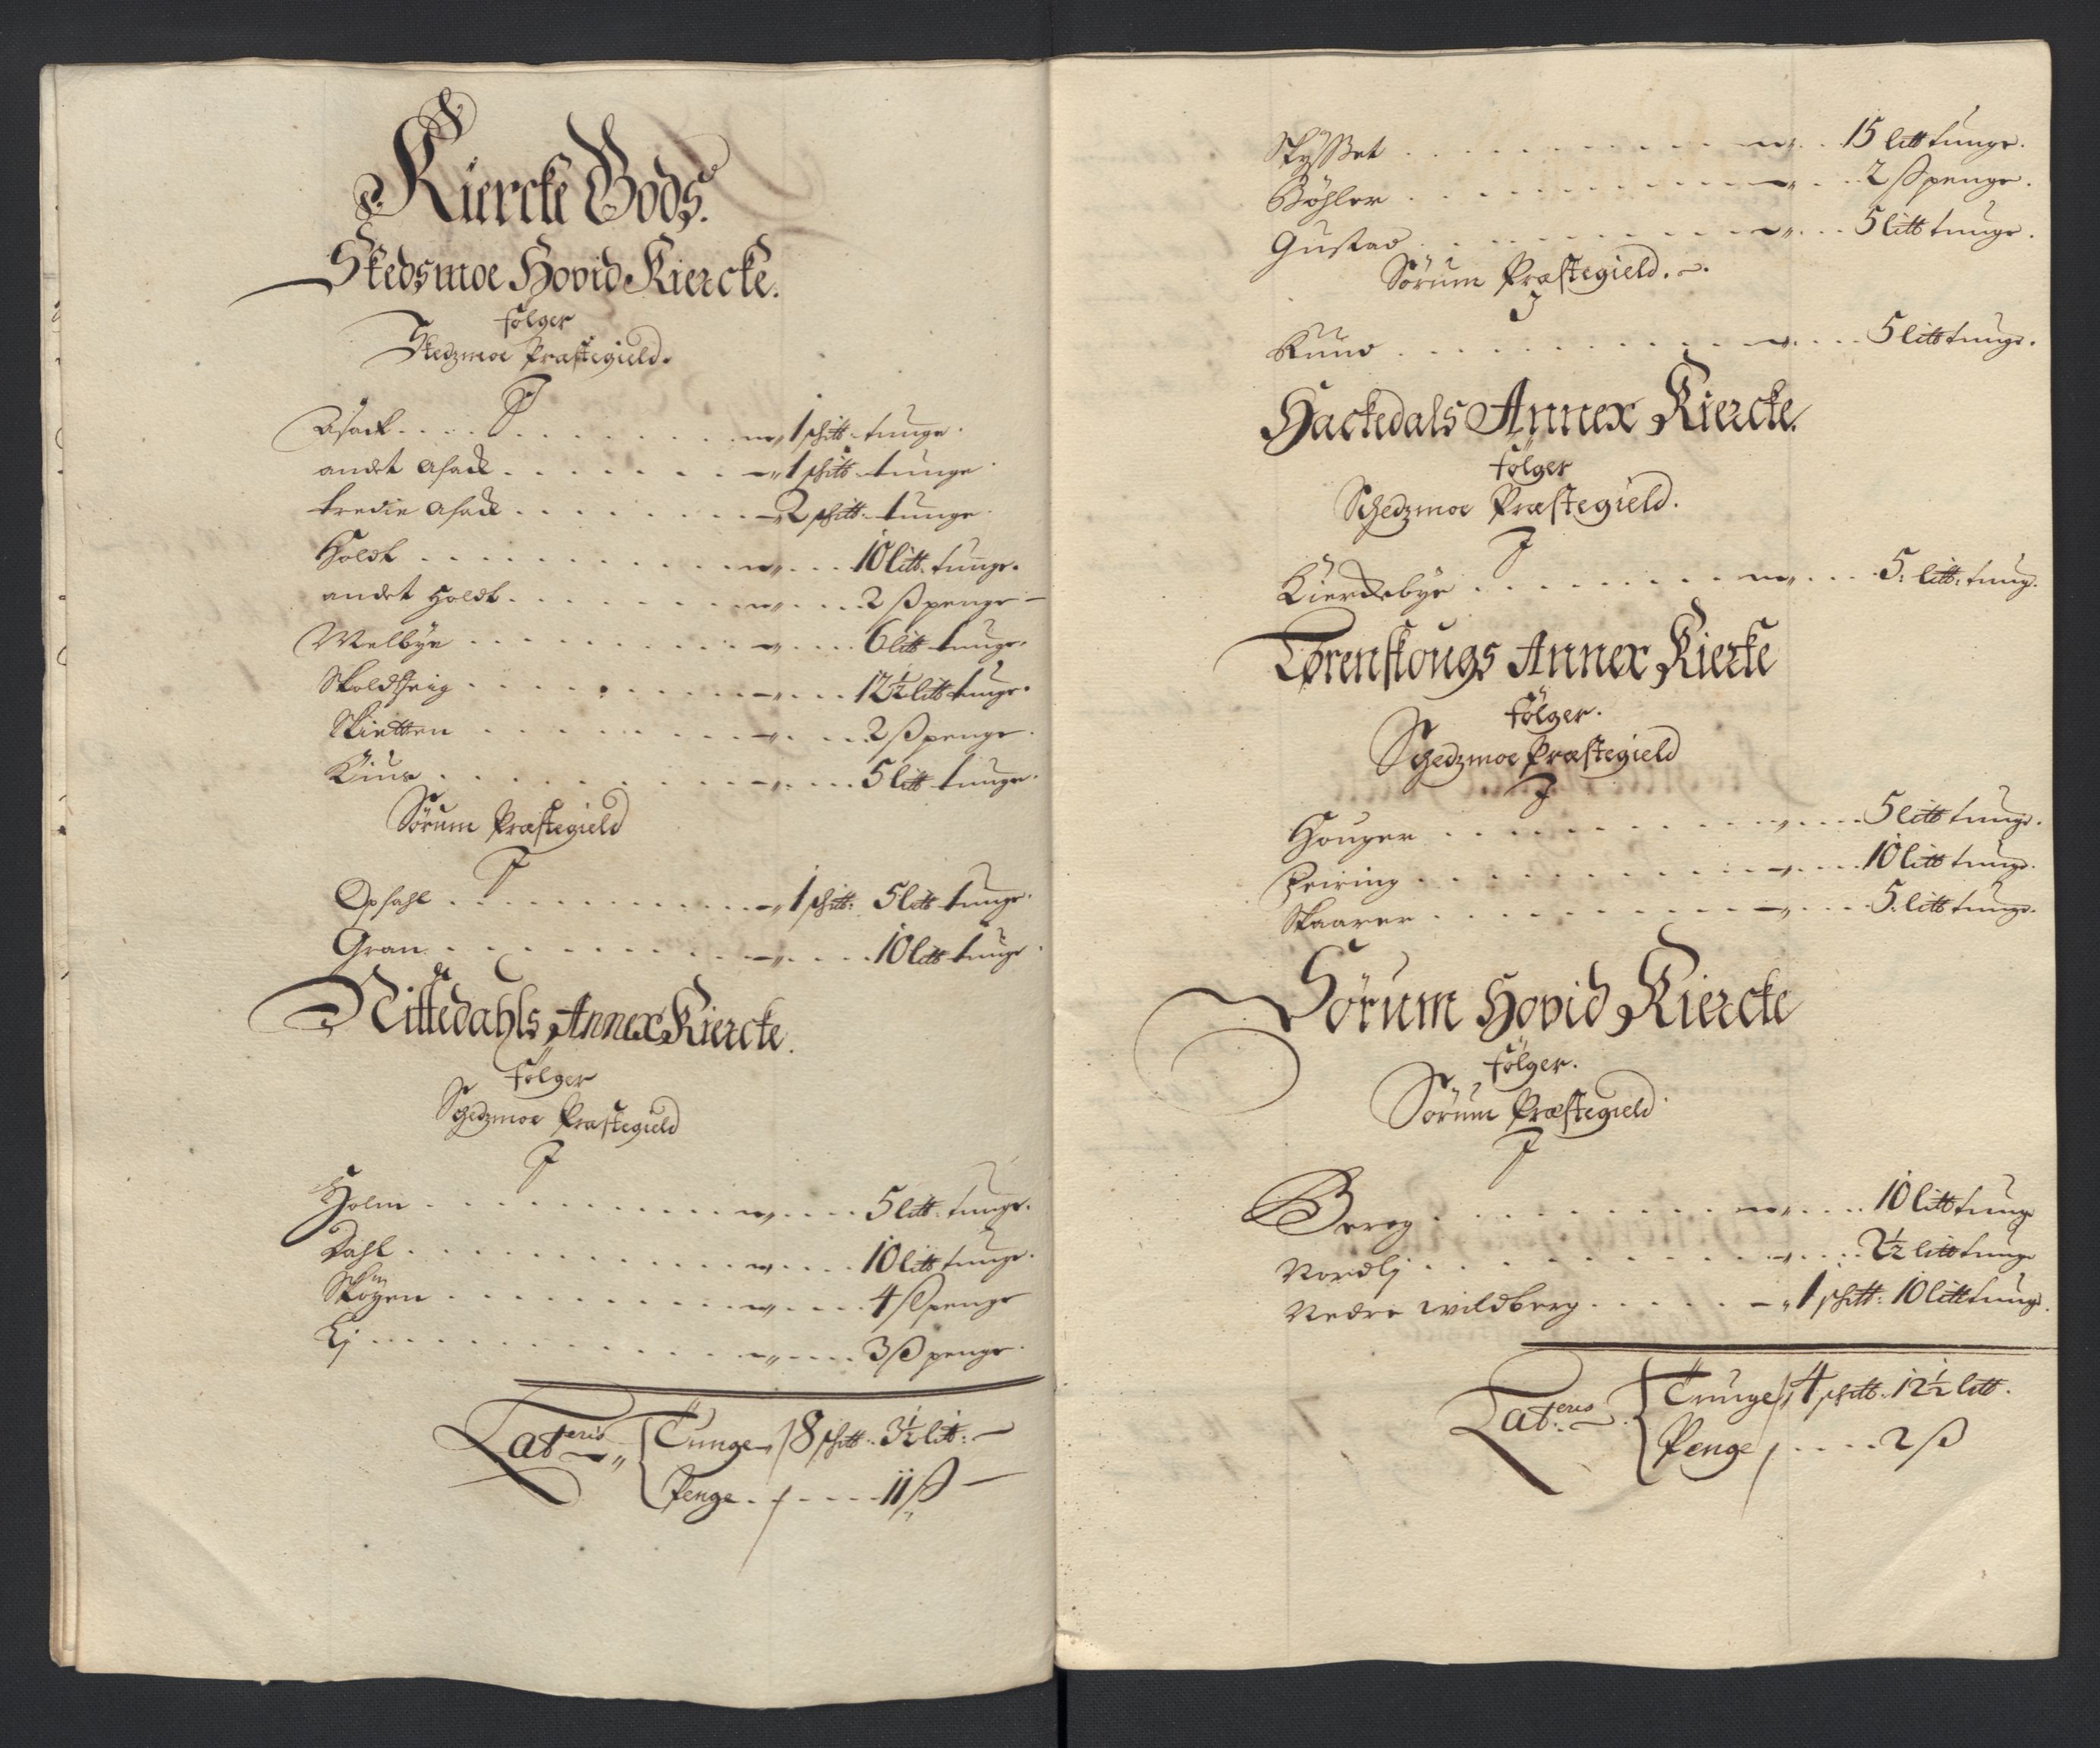 Kiercke Gods.
Skedsmoe Hovid Kiercke.
følger
Skedzmoe Præstegield.
Asack . . . 1 schitt: tunge.
andet Asack . . . 1 schitt: tunge
tredie Asack . . . 2 schitt: tunge
Holdt . . . 10 litt: tunge.
andet Holdt . . . 2 ß penge
Melbye . . . 6 litt tunge.
. . . 12½ litt tunge.
Skietten . . . 2 ß penge
. . . 5 litt tunge.
Sørum Præstegield
Opsahl . . . 1 schitt: 5 litt tunge.
Gran . . . 10 litt tunge
Nittedahls Annex Kiercke.
følger
Schedzmoe Præstegield
Holm . . . 5 litt: tunge.
Dahl . . . 10 litt tunge.
Skøyen . . . 4 ß penge
Lj . . . 3 ß penge.
Lateris Tunge 8 schitt: 3½ litt:
Penge . . . 11 ß
. . . 15 litt tunge.
Bøhler . . . 2 ß penge.
Gustad . . . 5 litt tunge.
Sørum Præstegield.
. . . 5 litt tunge.
Hackedals Annex Kiercke.
følger
Schedzmoe Præstegield.
Kierckebye . . . 5: litt: tung.
Lørenskougs Annex Kiercke
følger.
Schedzmoe Præstegield
Houger . . . 5 litt tunge.
. . . 10 litt tunge.
Skaarer . . . 5 litt tunge.
Sørum Hovid Kiercke
følger.
Sørum Præstegield
Berrg . . . 10 litt tunge
Nordlj . . . 2½ litt tunge
Nedre wildberg . . . 1 schitt: 10 litt tunge.
Lateris Tunge 4 schitt: 12½ litt.
Penge . . . 2 ß